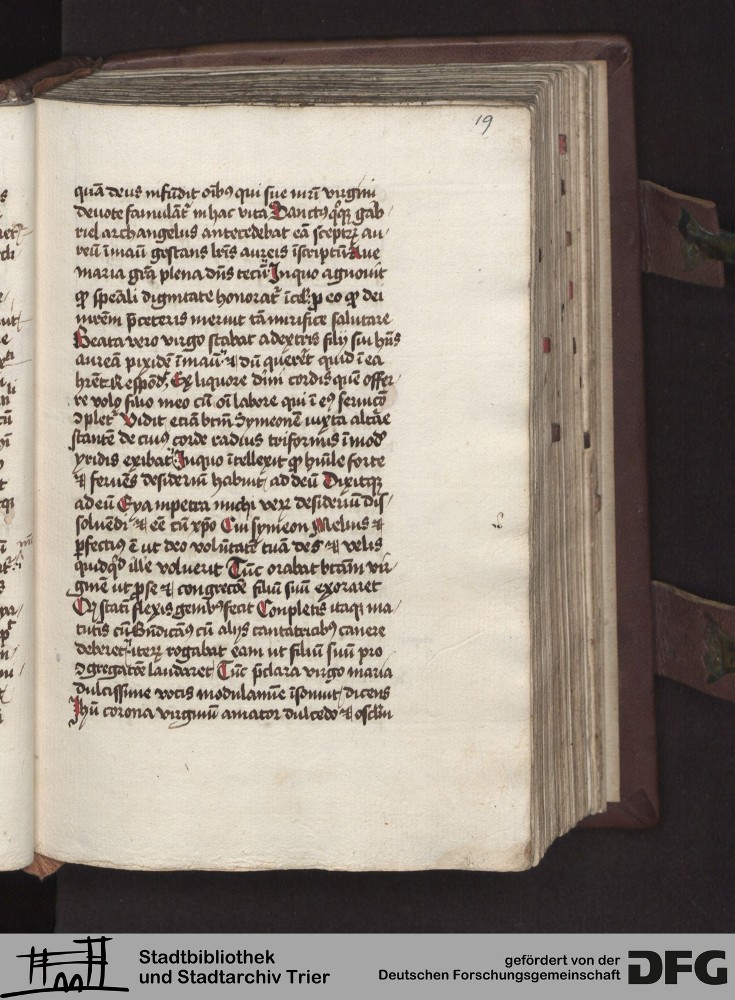 19
quā deus infūdit oībꝰ qui sue mr̄i virgini
deuote famulāt᷑ in hac vita Sanctꝰ qͦꝫ gab
riel archangelus antecedebat eā sceptꝝ au
reū ī manu gestans lr̄is aureis īscriptū Aue
maria gr̄a plena dn̄s tecū In quo agnouit
ꝙ spēali dignitate honorat᷑ ī cel ꝓ eo ꝙ dei
mr̄em p̄ceteris meruit tā mirifice salutare
Beata vero virgo stabat a dextris filij sui hn̄s
aureā pixidē ī manu ⁊ dū quereret quid ī ea
hr̄et Respōd Ex liquore diuini cordis quē offer
re volo filio meo cū oī labore qui ī eꝰ seruicō
ꝯplet᷑ Vidit etiā btm̄ Symeonē iuxta altāe
stantē de cuiꝰ corde radius triformis ī mod
yridis exibat In quo ītellexit ꝙ hūile forte
⁊ feruēs desideriū habuit ad deū Dixitqꝫ
ad eū Eya inpetra michi verꝝ desideriū dis
soluendi ⁊ eē cū xp̄o Cui symeon Melius ⁊
ꝑfectiꝰ ē ut deo volūtatē tuā des ⁊ velis
quidqͥd ille voluerit Tūc orabat btām vir
ginē ut ꝓ se ⁊ congrecōe filiū suū exoraret
Qͥ statī flexis genibꝰ fecit Conpletis itaqꝫ ma
tutīs cū Bn̄dicāꝰ cū alijs cantatricibꝰ canere
deberet iteꝝ rogabat eam ut filiū suū pro
ꝯgregatōe laudaret Tūc p̄clara virgo maria
dulcissime vocis modulamīe īsonuit dicens
Jhū corona virginū amator dulcedo ⁊ osclm̄
Stadtbibliothek
und Stadtarchiv Trier
gefördert von der
Deutschen Forschungsgemeinschaft
DFG